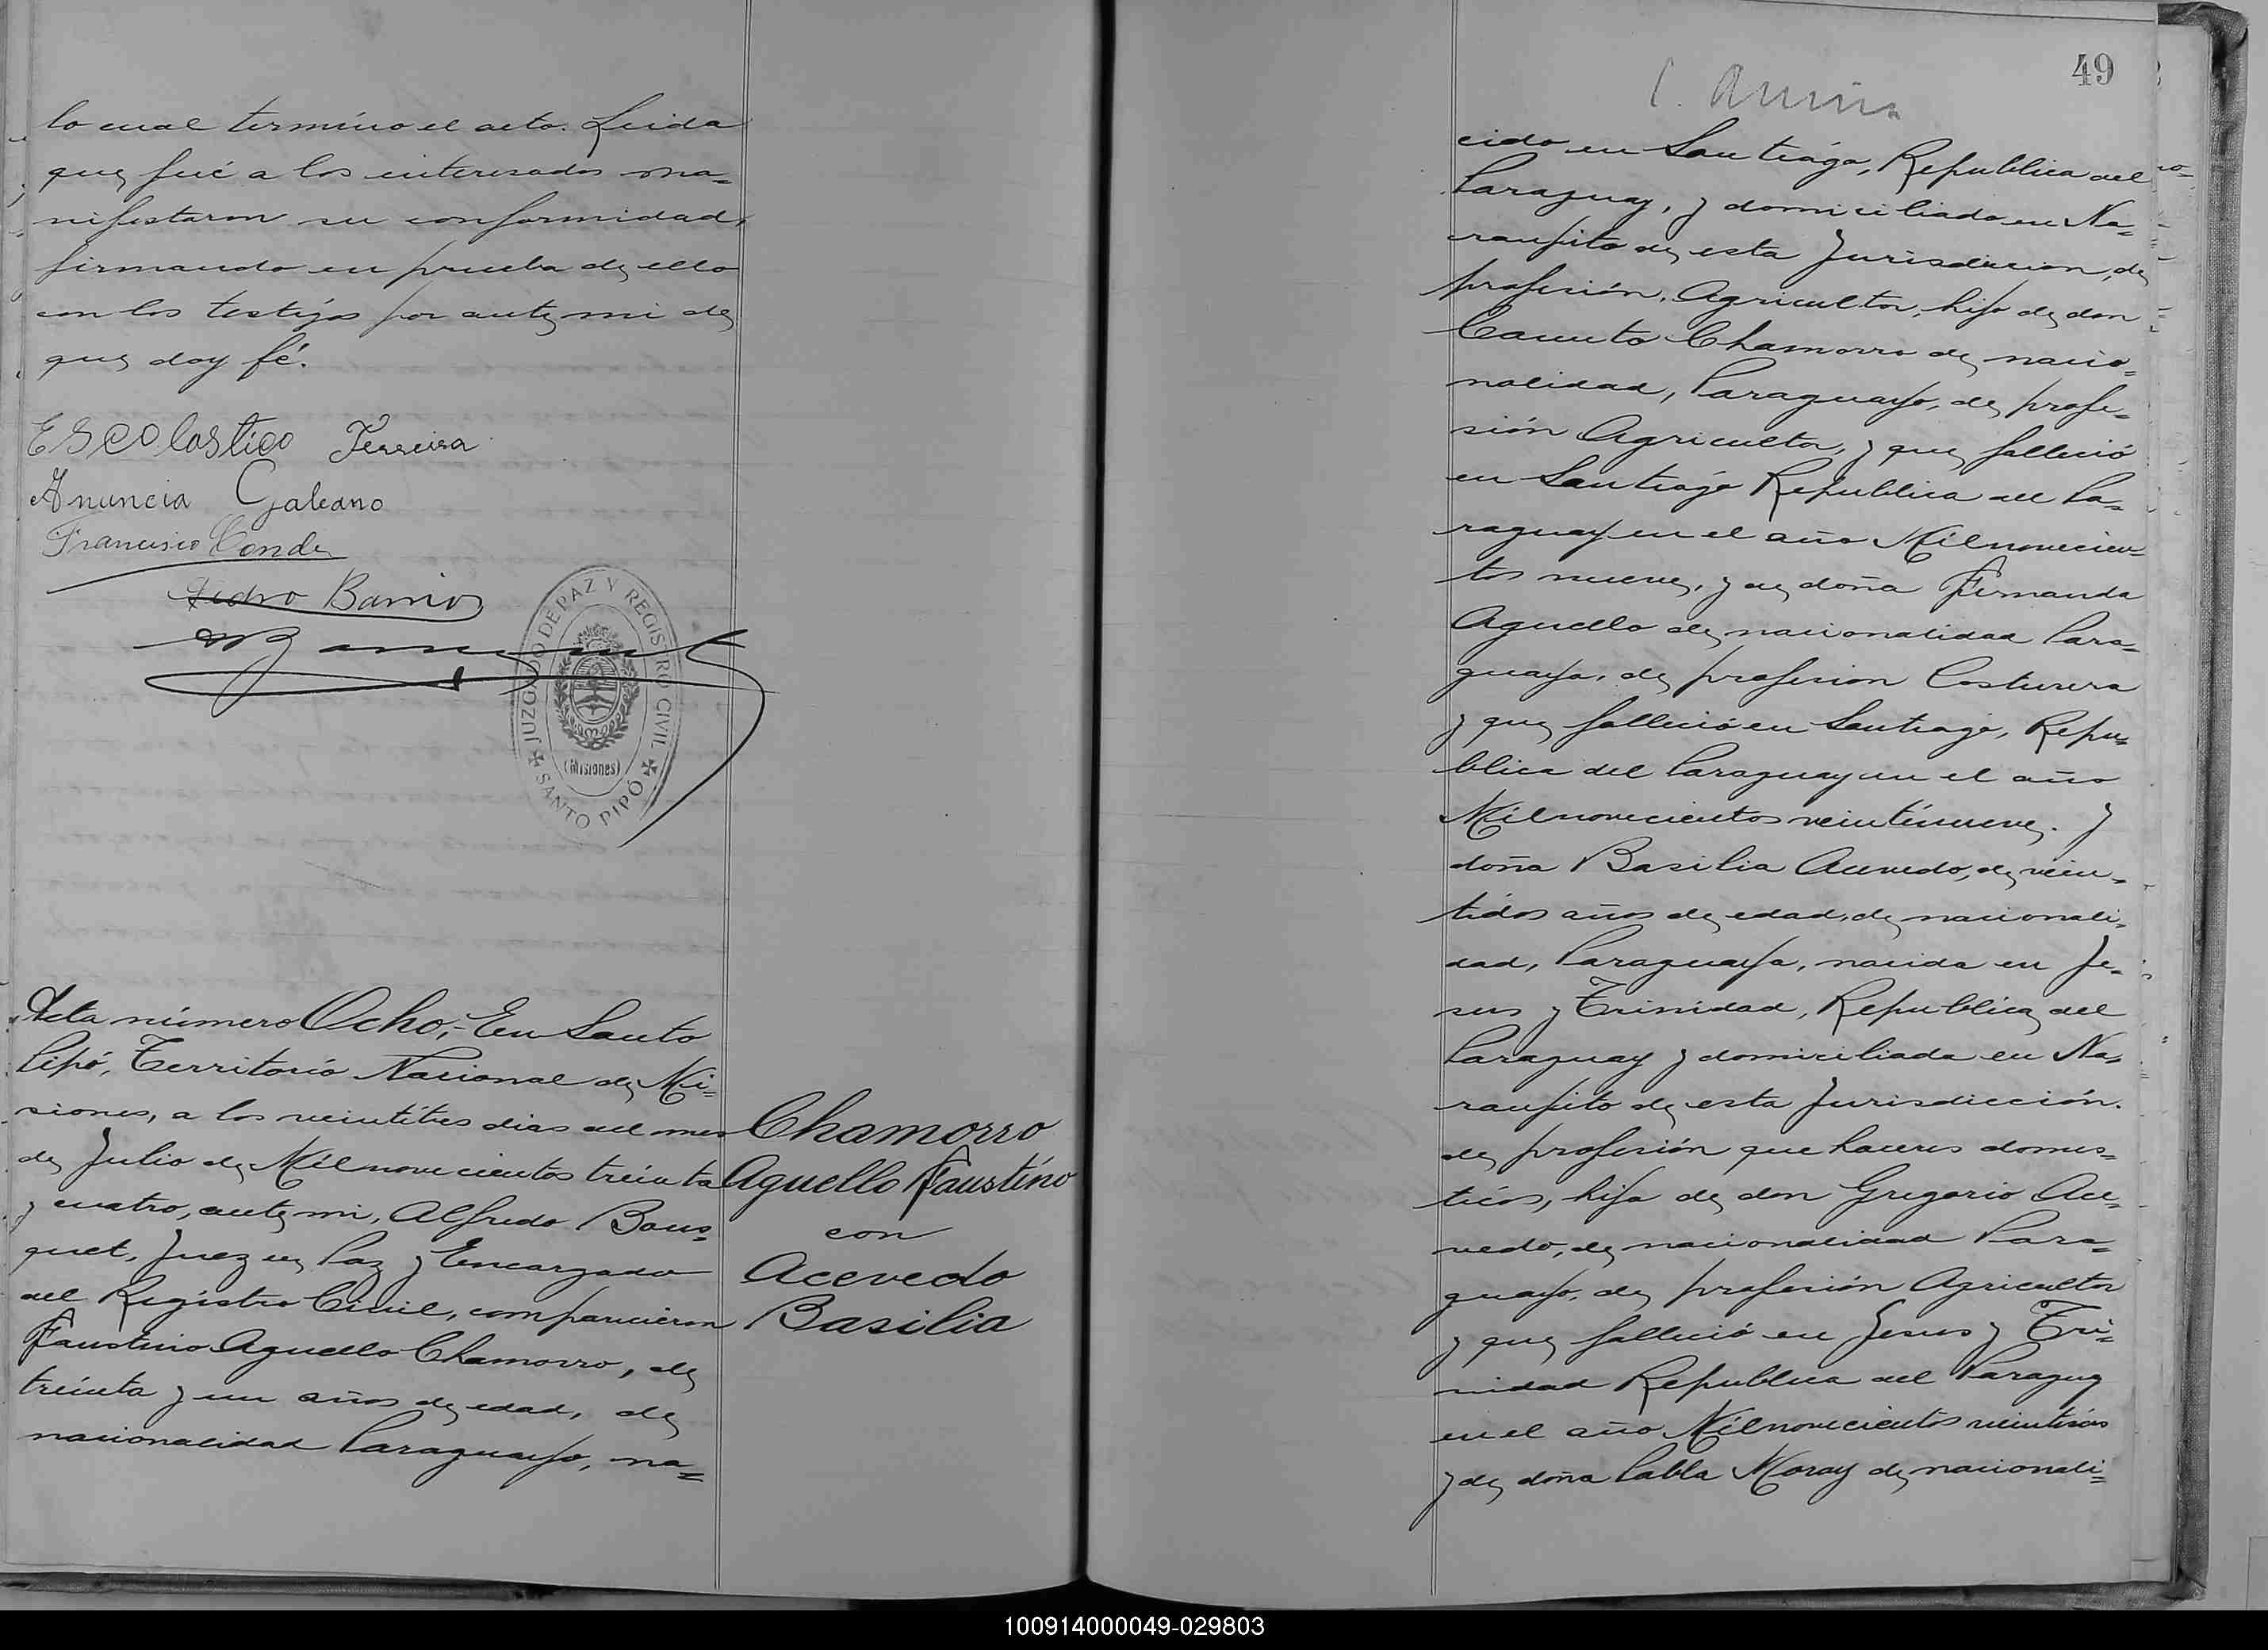 lo cual termino el acto. Leida
que fué a los interesados ma=
nifestaron su conformidad,
firmando en prueba de ello
con los testigos por ante mi de
que doy fé.
Escolastico Ferreira
Anuncia Galeano
Francisco Conde
Pedro Barrios
JUZGADO DE PAZ Y REGISTRO CIVIL
(Misiones)
SANTO PIPÓ
Acta número Ocho,- En Santo
Pipó, Territorio Nacional de Mi=
siones, a los veintitres dias del mes
de Julio de Mil novecientos treinta
y cuatro, ante mi, Alfredo Bous=
quet, Juez de Paz y Encargado
del Registro Civil, comparecieron
Faustino Aguello Chamorro, de
treinta y un años de edad, de
nacionalidad Paraguayo, na=
Chamorro
Aguello Faustino
con
Acevedo
Basilia
49
cido en Santiago, Republica del
Paraguay, y domiciliado en Na=
ranjito de esta Jurisdiccion, de
profesión, Agricultor, hijo de don
Canuto Chamorro de nacio=
nalidad, Paraguayo, de profe=
sión Agricultor, y que falleció
en Santiago Republica del Pa=
raguay en el año Mil novecien=
tos nueve, y de doña Fernanda
Aguello de nacionalidad Para=
guaya, de profesion Costurera
y que falleció en Santiago, Repu=
blica del Paraguay en el año
Mil novecientos veintinueve. y
doña Basilia Acevedo, de vein=
tidos años de edad, de nacionali=
dad, Paraguaya, nacida en Je=
sus y Trinidad, Republica del
Paraguay y domiciliada en Na=
ranjito de esta Jurisdicción.
de profesión que haceres domes=
ticos, hija de don Gregorio Ace=
vedo, de nacionalidad Para=
guayo, de profesión Agricultor
y que falleció en Jesus y Tri=
nidad Republica del Paraguay
en el año Mil novecientos veintiseis
y de doña Pabla Moray de nacionali=
100914000049-029803